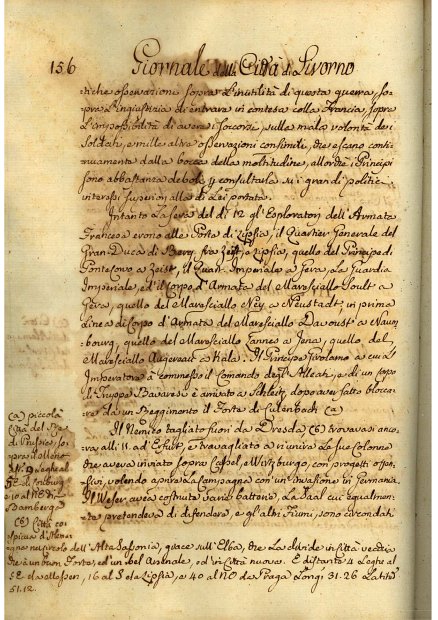 156 Giornale della Città di Livorno
tiche osservazioni sopra l'inutilità di questa guerra, so-
pra l'ingiustizia di entrare in contesa colla Francia, sopra
l'impossibilità di avere soccorsi, sulla mala volontà dei
Soldati, e mille altre osservazioni consimili, che escano conti-
nuamente dalla bocca della moltitudine, allorchè i Principi
sono abbastanza deboli p consultarla su i grandi politici
interessi superiori alla di lei portata.
Intanto la sera del dì 12 gl'Esploratori dell'Armata
Francese erono alle Porte di Lipsia, il Quartier Generale del
Gran-Duca di Berg fra Zeist, e Lipsia, quello del Principe di
Pontecorvo a Zeist, il Quart. Imperiale a Gera, la Guardia
Imperiale, ed il Corpo d'Armata del Maresciallo Soult a
Gera, quello del Maresciallo Ney a Neustadt; in prima
Linea il Corpo d'Armata del Maresciallo Davoust a Naum-
bourg, quello del Maresciallo Lannes a Jena, quello del
Maresciallo Augereau a Kala. Il Principe Girolamo a cui l'
Imperatore à commesso il Comando degl'Alleati, e di un corpo
di Truppe Bavaresi è arrivato a Schleitz, dopo aver fatto blocca-
re da un Reggimento il Forte di Culenbach (a)
Il Nemico tagliato fuori da Dresda (b) trovavasi anco-
ra alli 11 ad Erfurt, e travagliato a riunire le sue Colonne
che aveva inviato sopra Cassel, e Wirzburgo, con progetti offen-
sivi, volendo aprire la Campagna con un'invasione in Germania.
Il Weser, avea costrutte varie batterie, la Saal cui egualmen-
te pretendeva di difendere, e gl'altri Fiumi, sono circondati
(a) piccola
Città del
di Prussia, so-
pra il
leghe al
e 10 al NE di
Bamberga
(b) Città co-
spicua d'Alema-
gna nel circolo dell'Alta Sassonia, giace sull'Elba, che la divide in Città vecchia
che à un buon Forte, ed un bel Arsenale, ed in Città nuova. È distante 4 leghe al
SE da Meissen, 16 al S E da Lipsia, e 40 al NO da Praga Long. 31.26 Latitud.
51.12.